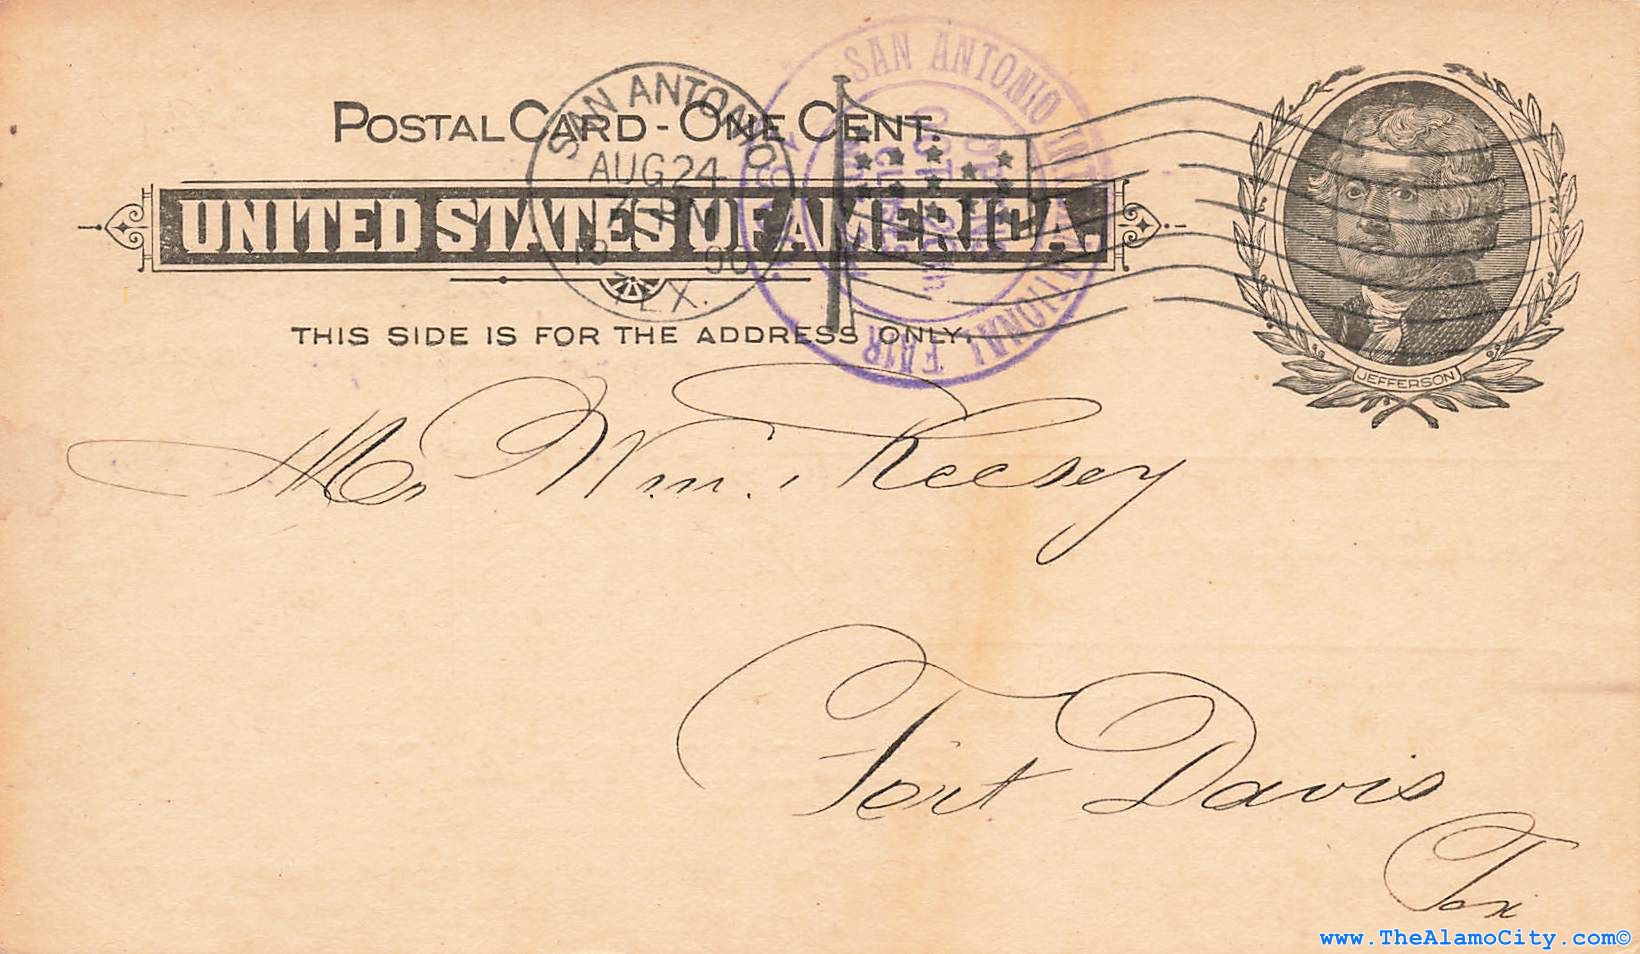 POSTAL CARD - ONE CENT.
UNITED STATES OF AMERICA.
THIS SIDE IS FOR THE ADDRESS ONLY.
SAN ANTONIO
AUG 24
TEX.
SAN ANTONIO INTERNATIONAL FAIR
JEFFERSON
Mr Wm. Keesey
Fort Davis
Tex
www.TheAlamoCity.com©